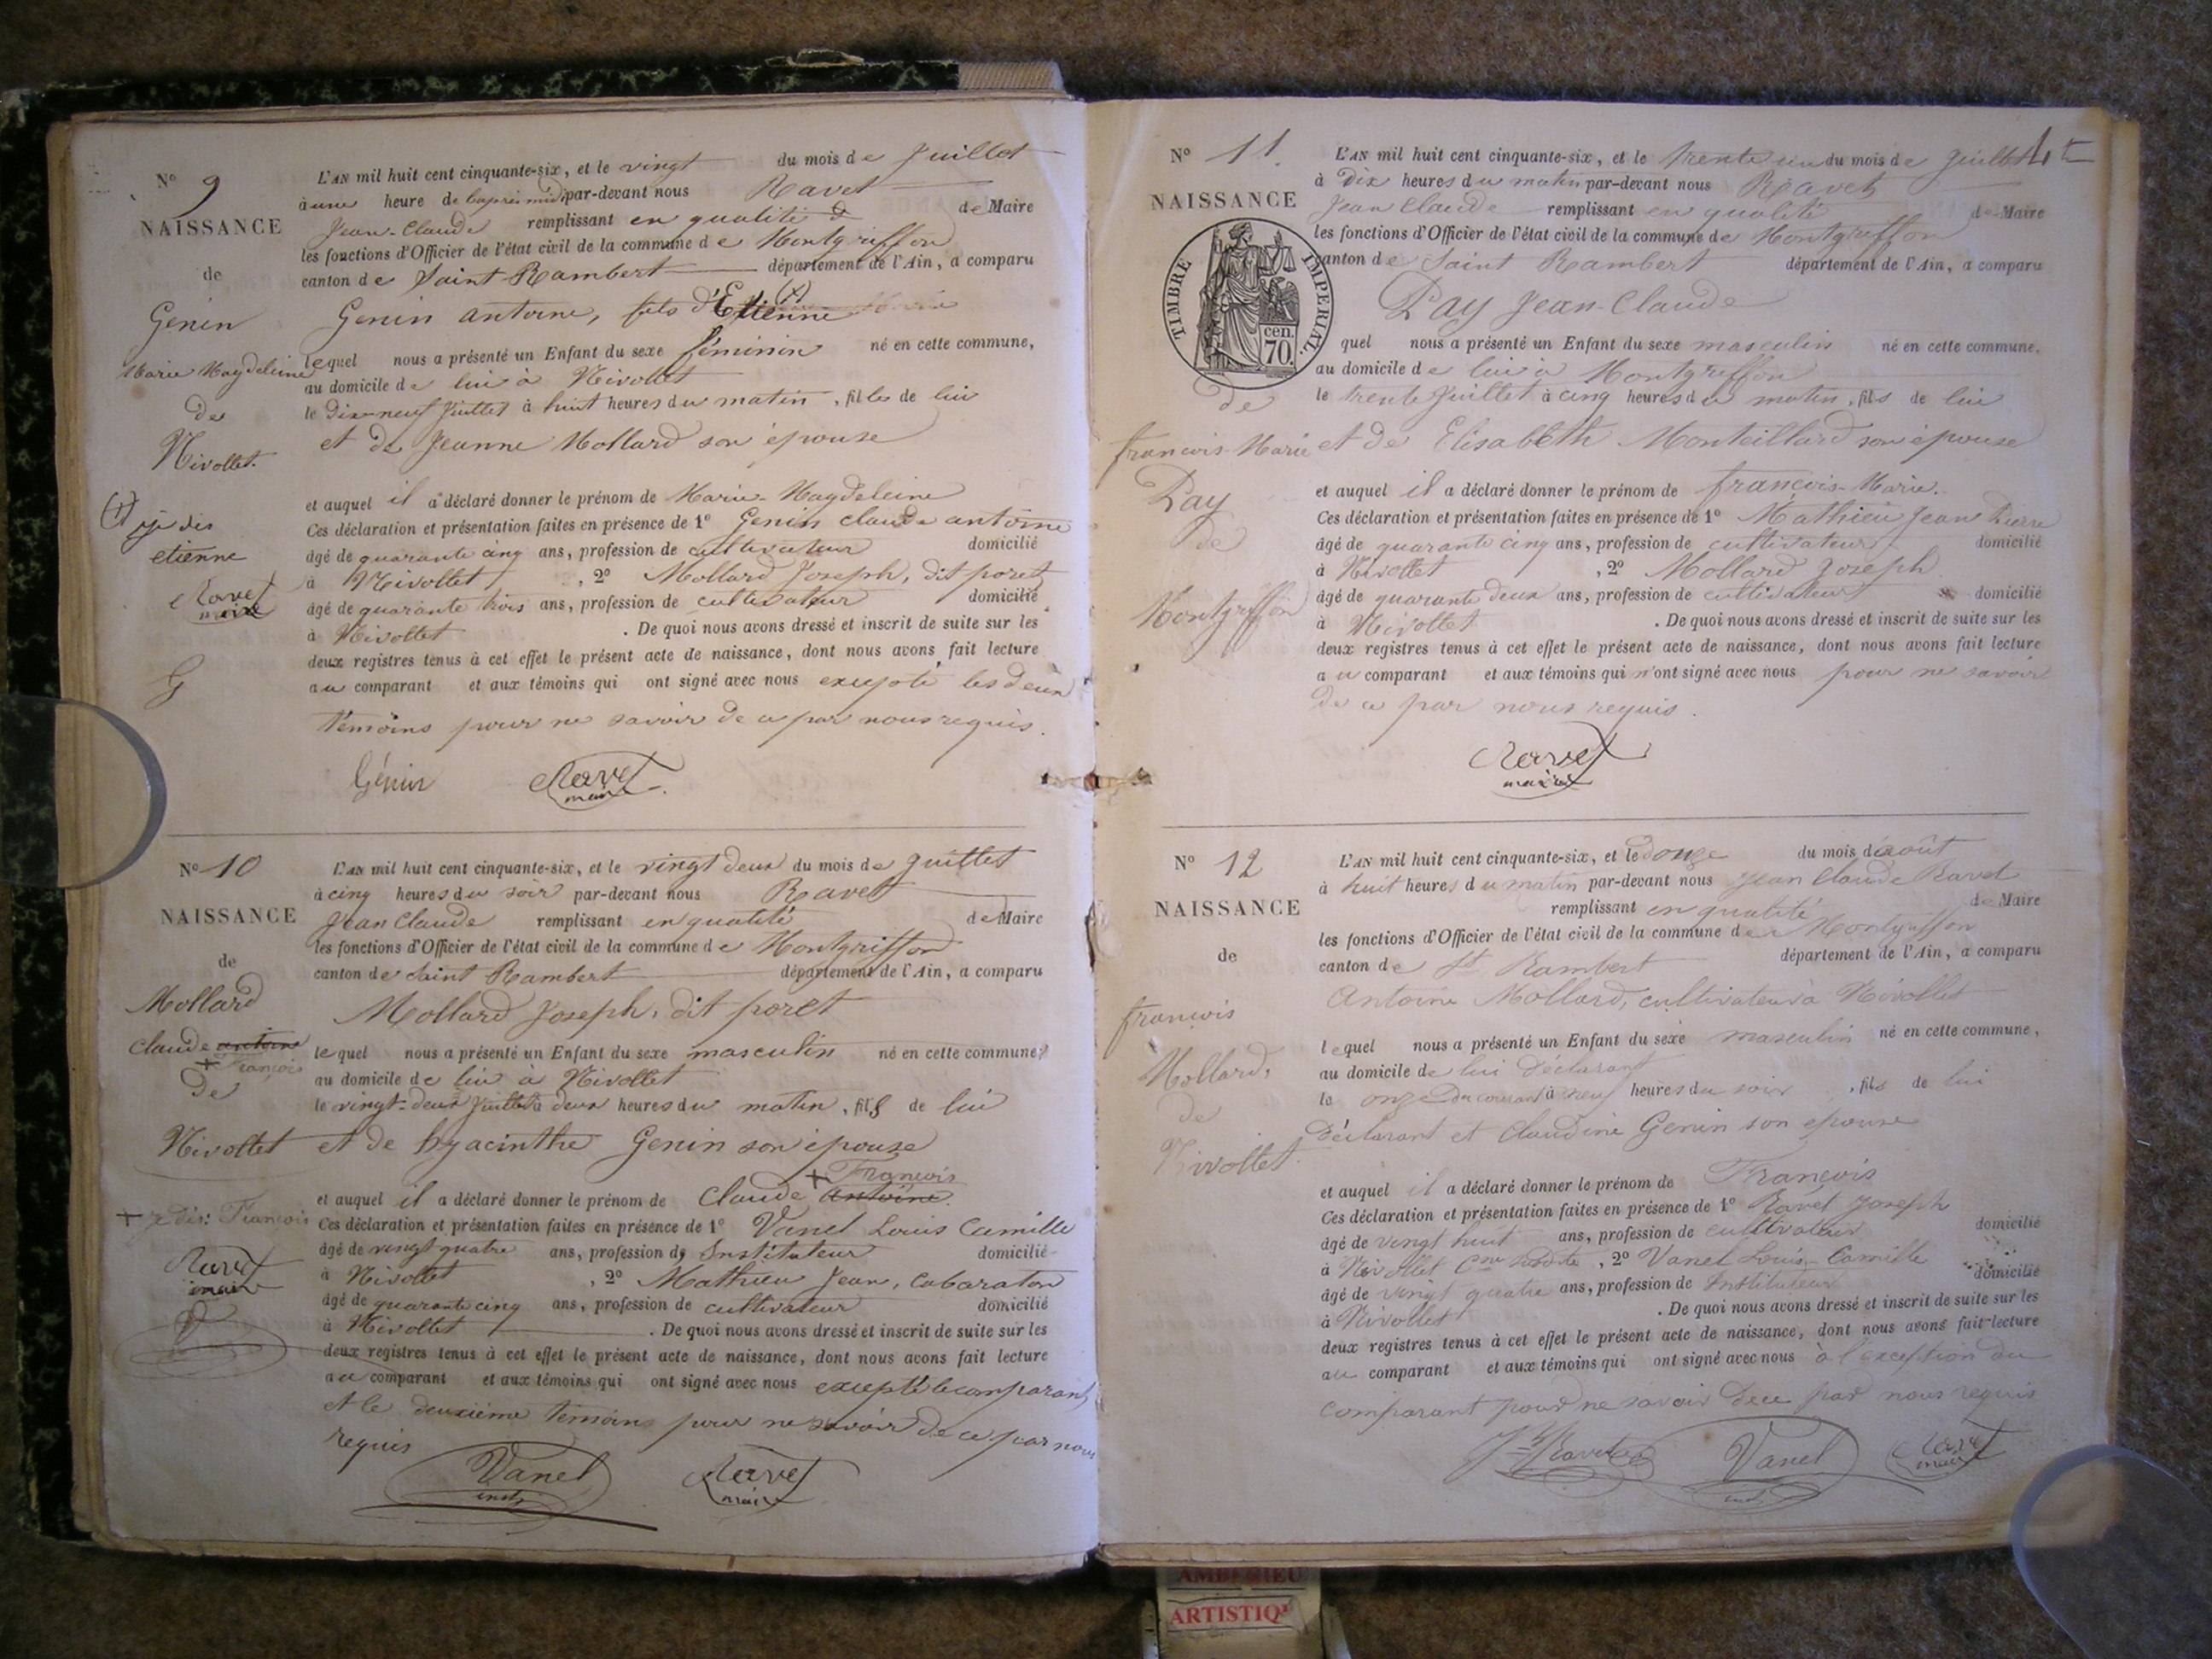 N° 9
NAISSANCE
de
Genin
Marie Magdeleine
de
Nivollet.
(1) je dis
etienne
Ravet
maire
G
L'AN mil huit cent cinquante-six, et le vingt du mois de Juillet
à une heure de l'après midi par-devant nous Ravet
Jean-Claude remplissant en qualité d de Maire
les fonctions d'Officier de l'état civil de la commune de Montgriffon
canton de Saint-Rambert département de l'Ain, a comparu
Genin antoine, fils d'Etienne (1)
lequel nous a présenté un Enfant du sexe féminin né en cette commune,
au domicile de lui à Nivollet
le dix-neuf Juillet à huit heures du matin, fille de lui
et de Jeanne Mollard son épouse
et auquel il a déclaré donner le prénom de Marie-Magdeleine
Ces déclaration et présentation faites en présence de 1° Genin claude antoine
âgé de quarante cinq ans, profession de cultivateur domicilié
à Nivollet, 2° Mollard Joseph, dit poret
âgé de quarante trois ans, profession de cultivateur domicilié
à Nivollet. De quoi nous avons dressé et inscrit de suite sur les
deux registres tenus à cet effet le présent acte de naissance, dont nous avons fait lecture
au comparant et aux témoins qui ont signé avec nous excepté les deux
témoins pour ne savoir de ce par nous requis.
Génin Ravet
maire
N° 10
NAISSANCE
de
Mollard
Claude antoine
+ François
de
Nivollet
+ je dis: François
Ravet
maire
L'AN mil huit cent cinquante-six, et le vingt deux du mois de Juillet
à cinq heures du soir par-devant nous Ravet
Jean Claude remplissant en qualité de Maire
les fonctions d'Officier de l'état civil de la commune de Montgriffon
canton de Saint Rambert département de l'Ain, a comparu
Mollard Joseph, dit poret
lequel nous a présenté un Enfant du sexe masculin né en cette commune,
au domicile de lui à Nivollet
le vingt-deux Juillet à deux heures du matin, fils de lui
et de hyacinthe Genin son épouse
+ François
et auquel il a déclaré donner le prénom de Claude antoine
Ces déclaration et présentation faites en présence de 1° Vanel Louis Camille
âgé de vingt quatre ans, profession d' Instituteur domicilié
à Nivollet, 2° Mathieu Jean, Cabaraton
âgé de quarante cinq ans, profession de cultivateur domicilié
à Nivollet. De quoi nous avons dressé et inscrit de suite sur les
deux registres tenus à cet effet le présent acte de naissance, dont nous avons fait lecture
au comparant et aux témoins qui ont signé avec nous excepté le comparant
et le deuxième témoins pour ne savoir de ce par nous
requis
Vanel Ravet
instr maire
4te
N° 11.
NAISSANCE
TIMBRE IMPERIAL
cen.
70.
de
françois-Marie
Pay
de
Montgriffon
L'AN mil huit cent cinquante-six, et le trente un du mois de Juillet
à Dix heures du matin par-devant nous Ravet
Jean Claude remplissant en qualité de Maire
les fonctions d'Officier de l'état civil de la commune de Montgriffon
canton de Saint Rambert département de l'Ain, a comparu
Pay Jean-Claude
quel nous a présenté un Enfant du sexe masculin né en cette commune.
au domicile de lui à Montgriffon
le trente Juillet à cinq heures du matin, fils de lui
et de Elisabeth Monteillard son épouse
et auquel il a déclaré donner le prénom de françois-Marie.
Ces déclaration et présentation faites en présence de 1° Mathieu Jean Pierre
âgé de quarante cinq ans, profession de cultivateur domicilié
à Nivollet, 2° Mollard Joseph
âgé de quarante deux ans, profession de cultivateur domicilié
à Nivollet. De quoi nous avons dressé et inscrit de suite sur les
deux registres tenus à cet effet le présent acte de naissance, dont nous avons fait lecture
au comparant et aux témoins qui n'ont signé avec nous pour ne savoir
de ce par nous requis.
Ravet
maire
N° 12
NAISSANCE
de
françois
Mollard,
de
Nivollet.
L'AN mil huit cent cinquante-six, et le douze du mois d'août
à huit heures du matin par-devant nous Jean Claude Ravet
remplissant en qualité de Maire
les fonctions d'Officier de l'état civil de la commune de Montgriffon
canton de St Rambert département de l'Ain, a comparu
Antoine Mollard, cultivateur à Nivollet
lequel nous a présenté un Enfant du sexe masculin né en cette commune,
au domicile de lui déclarant
le onze du courant à neuf heures du soir, fils de lui
déclarant et Claudine Genin son epouse
et auquel il a déclaré donner le prénom de François
Ces déclaration et présentation faites en présence de 1° Ravet Joseph
âgé de vingt huit ans, profession de cultivateur domicilié
à Nivollet Cne susdite, 2° Vanel Louis-Camille
âgé de vingt quatre ans, profession de Instituteur domicilié
à Nivollet. De quoi nous avons dressé et inscrit de suite sur les
deux registres tenus à cet effet le présent acte de naissance, dont nous avons fait lecture
au comparant et aux témoins qui ont signé avec nous à l'exception du
comparant pour ne savoir de ce par nous requis
Jh Ravet Vanel Ravet
inst maire
AMBERIEU
ARTISTIQ